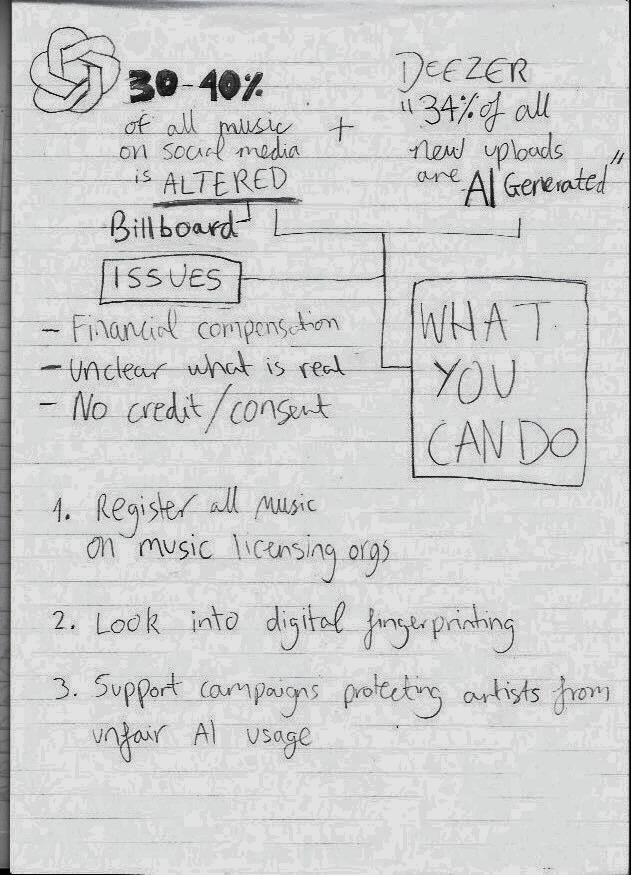 30-40%
of all music
on social media
is ALTERED
Billboard
+
DEEZER
"34% of all
new uploads
are AI Generated"
ISSUES
- Financial compensation
- Unclear what is real
- No credit/consent
WHAT
YOU
CAN DO
1. Register all music
on music licensing orgs
2. Look into digital fingerprinting
3. Support campaigns protecting artists from
unfair AI usage